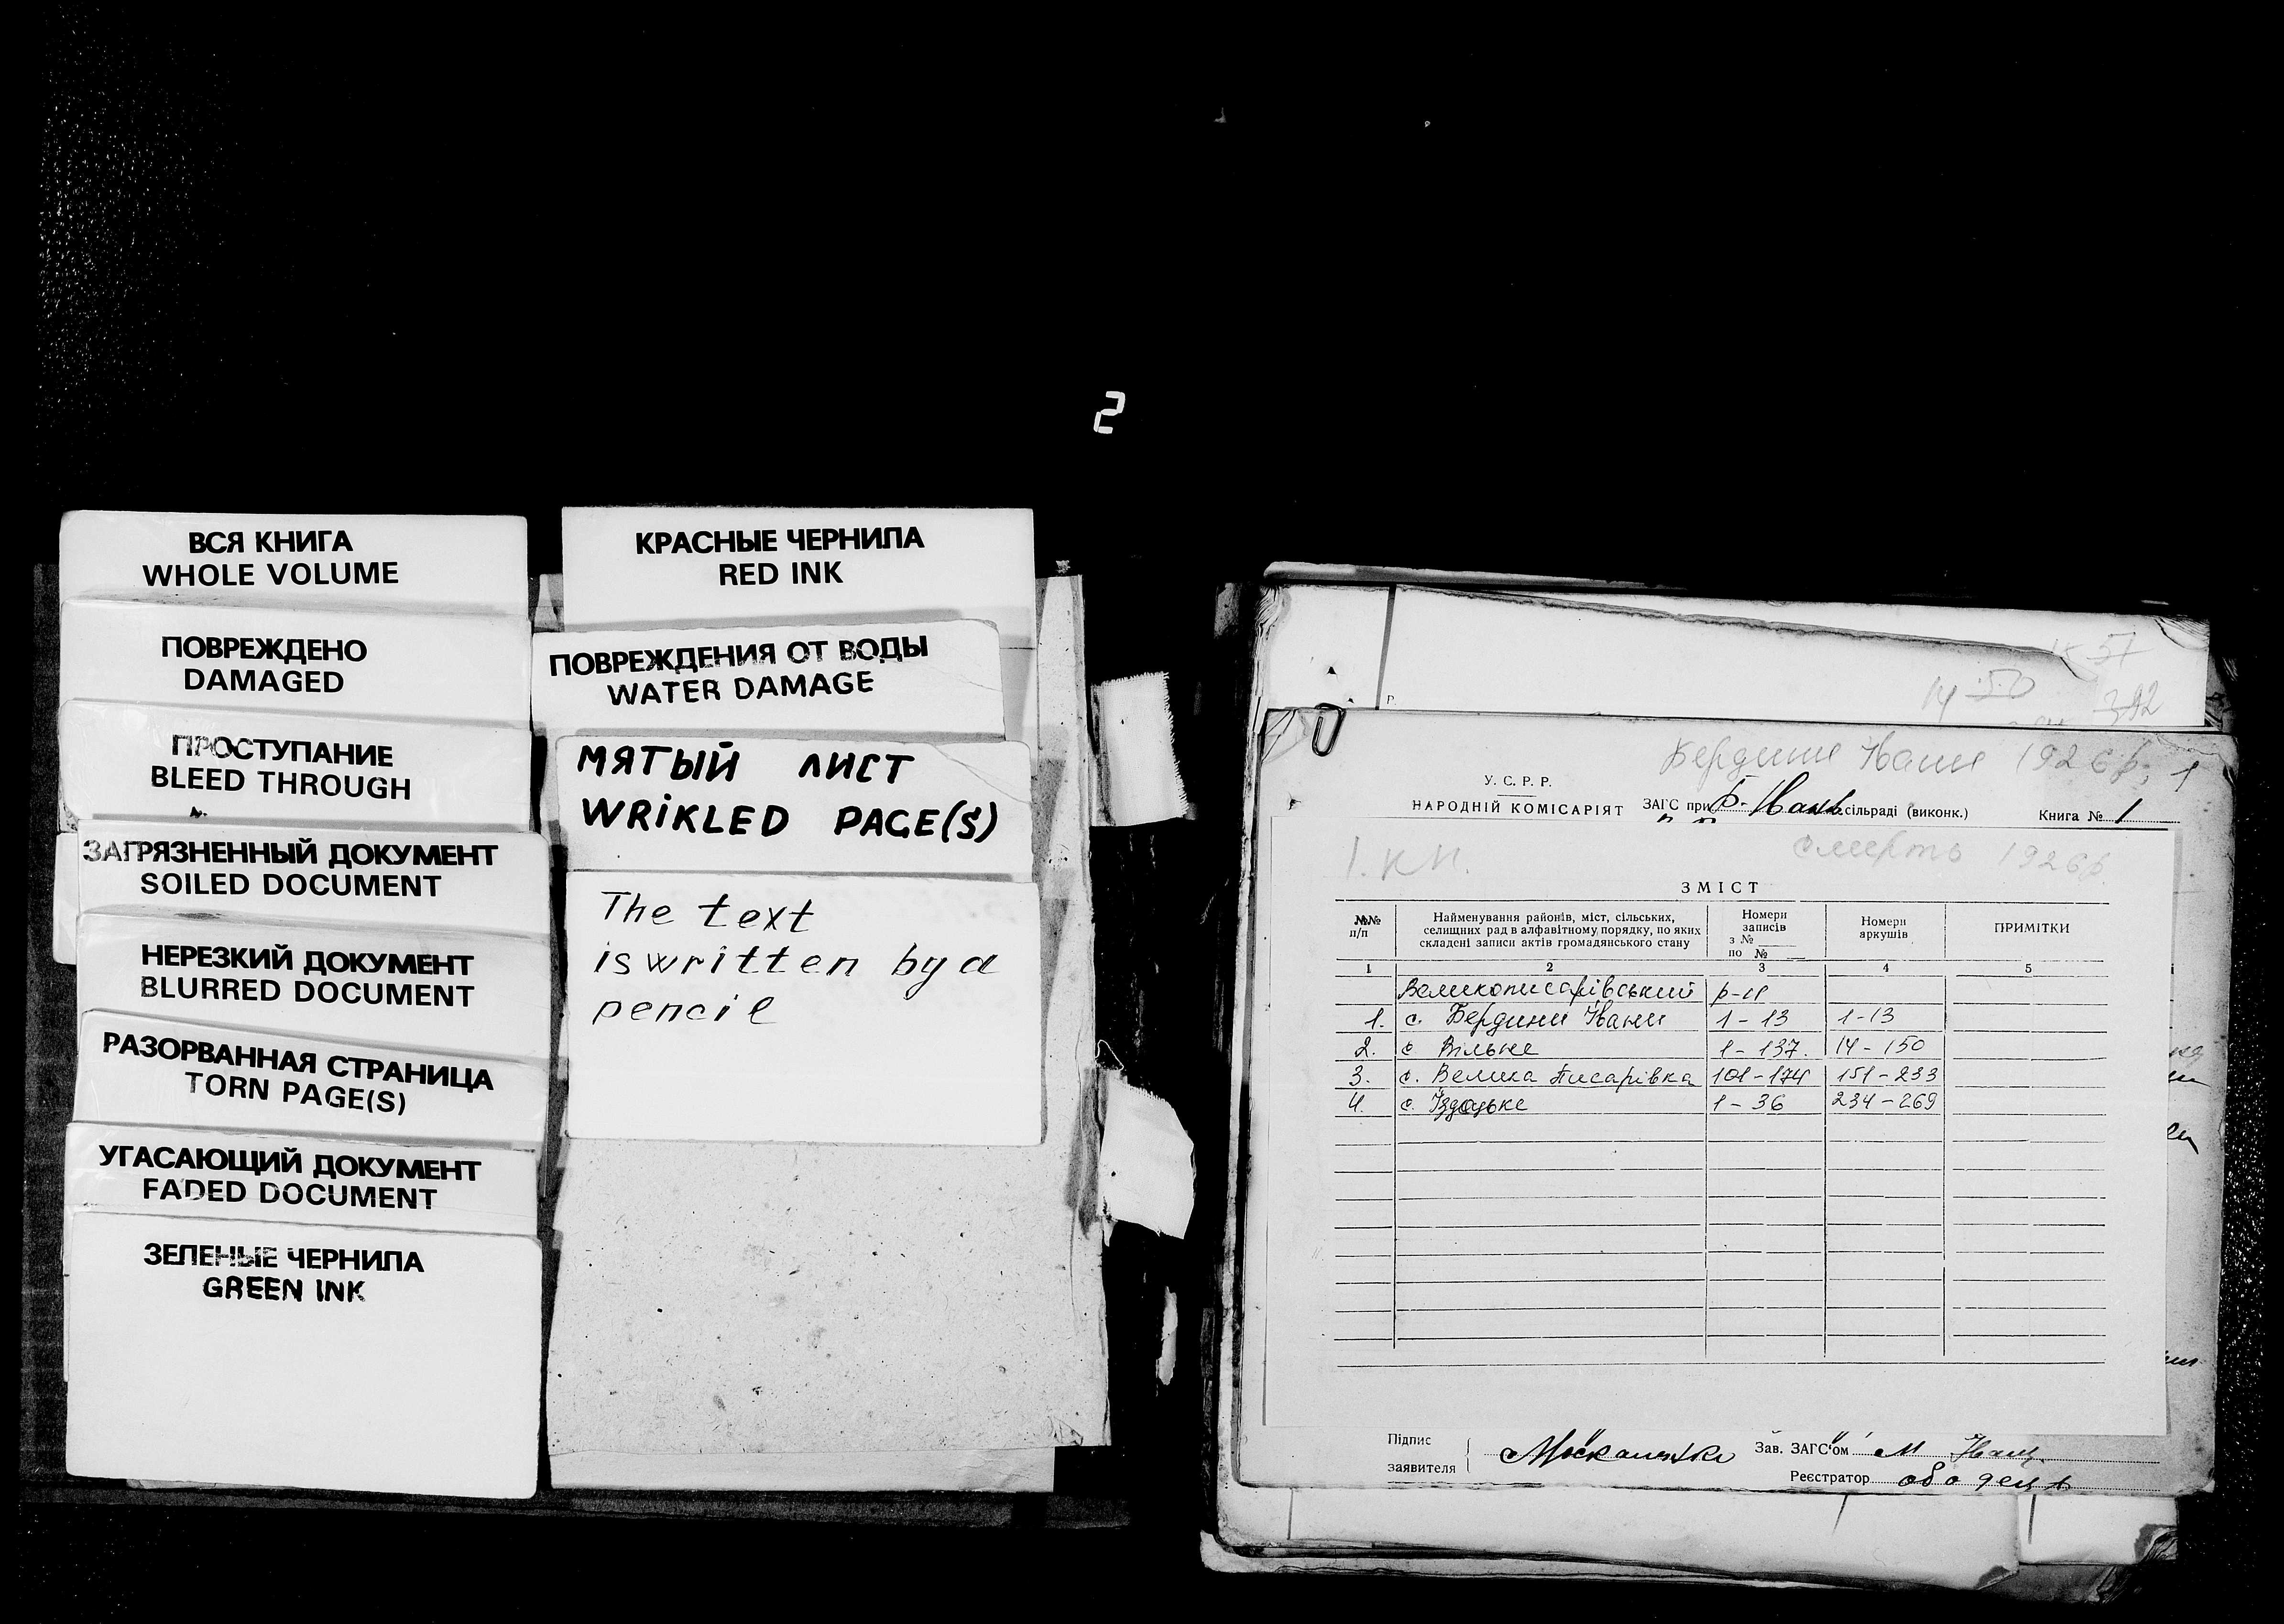 2
ВСЯ КНИГА
WHOLE VOLUME
ПОВРЕЖДЕНО
DAMAGED
ПРОСТУПАНИЕ
BLEED THROUGH
ЗАГРЯЗНЕННЫЙ ДОКУМЕНТ
SOILED DOCUMENT
НЕРЕЗКИЙ ДОКУМЕНТ
BLURRED DOCUMENT
РАЗОРВАННАЯ СТРАНИЦА
TORN PAGE(S)
УГАСАЮЩИЙ ДОКУМЕНТ
FADED DOCUMENT
ЗЕЛЕНЫЕ ЧЕРНИЛА
GREEN INK
КРАСНЫЕ ЧЕРНИЛА
RED INK
ПОВРЕЖДЕНИЯ ОТ ВОДЫ
WATER DAMAGE
МЯТЫЙ ЛИСТ
WRIKLED PAGE(S)
The text
is written by a
pencil
57
14 50
392
Р.
Бердини Івани 1926 р. 1
У. С. Р. Р.
НАРОДНІЙ КОМІСАРІЯТ ЗАГС при Б- Іван. сільраді (виконк.) Книга № 1
1. кн. смерть 1926р.
ЗМІСТ
№№ п/п Найменування районів, міст, сільських, селищних рад в алфавітному порядку, по яких складені записи актів громадянського стану Номери записів з № по № Номери аркушів ПРИМІТКИ
1 2 3 4 5
Великописарівський р-н
1. с. Бердини Івани 1-13 1-13
2. с Вільне 1-137. 14-150
3. с. Велика Писарівка 101-174 151-233
4. с. 1-36 234-269
Підпис заявителя Зав. ЗАГС'ом М
Реєстратор